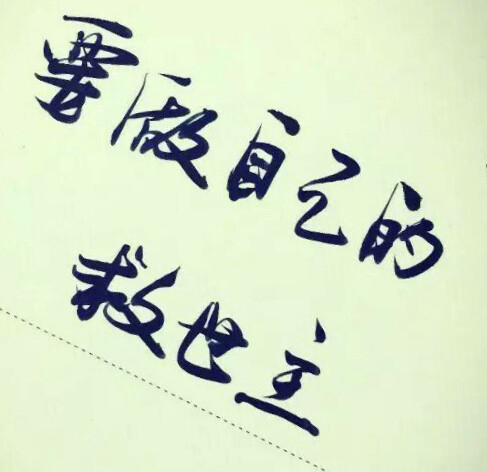 要做自己的
救世主